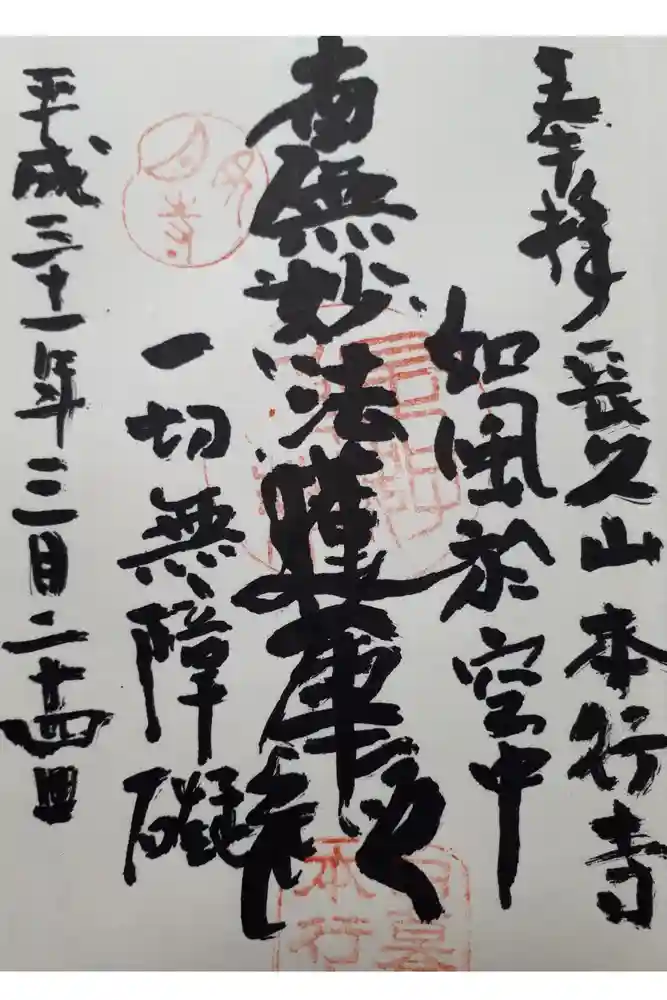 奉拝
長久山 本行寺
如風於空中
南無妙法蓮華経
一切無障礙
平成三十一年三月二十四日
本行